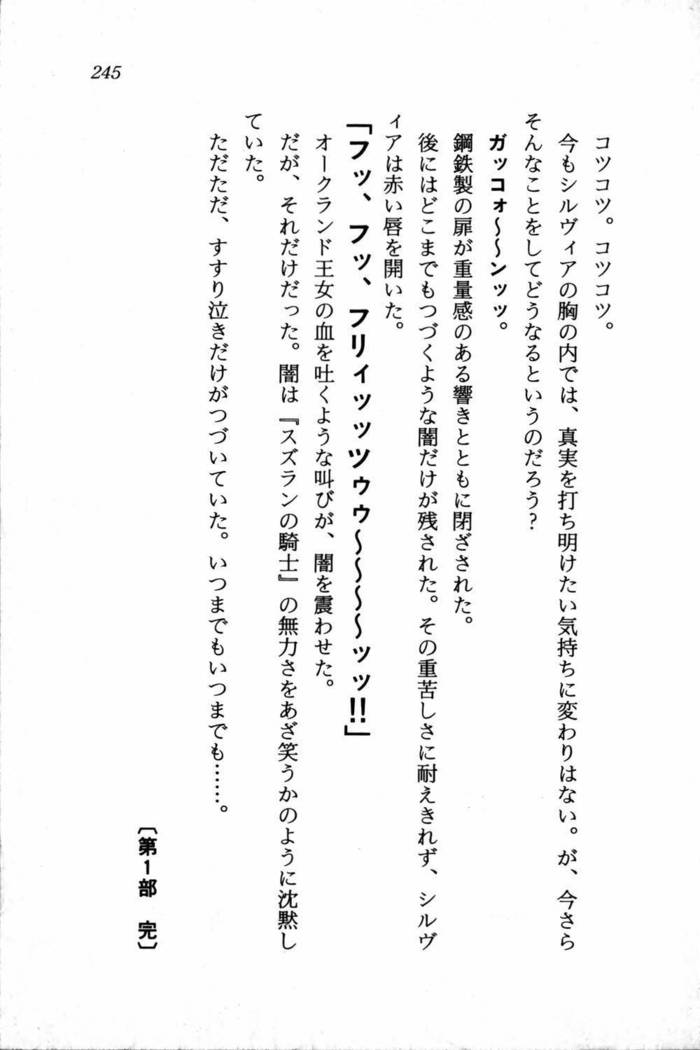 245
コツコツ。コツコツ。
今もシルヴィアの胸の内では、真実を打ち明けたい気持ちに変わりはない。が、今さら
そんなことをしてどうなるというのだろう？
ガッコォ～～ンッッ。
鋼鉄製の扉が重量感のある響きとともに閉ざされた。
後にはどこまでもつづくような闇だけが残された。その重苦しさに耐えきれず、シルヴ
ィアは赤い唇を開いた。
「フッ、フッ、フリィッッツゥゥ～～～～ッッ!!」
オークランド王女の血を吐くような叫びが、闇を震わせた。
だが、それだけだった。闇は『スズランの騎士』の無力さをあざ笑うかのように沈黙し
ていた。
ただただ、すすり泣きだけがつづいていた。いつまでもいつまでも……。
〔第１部　完〕